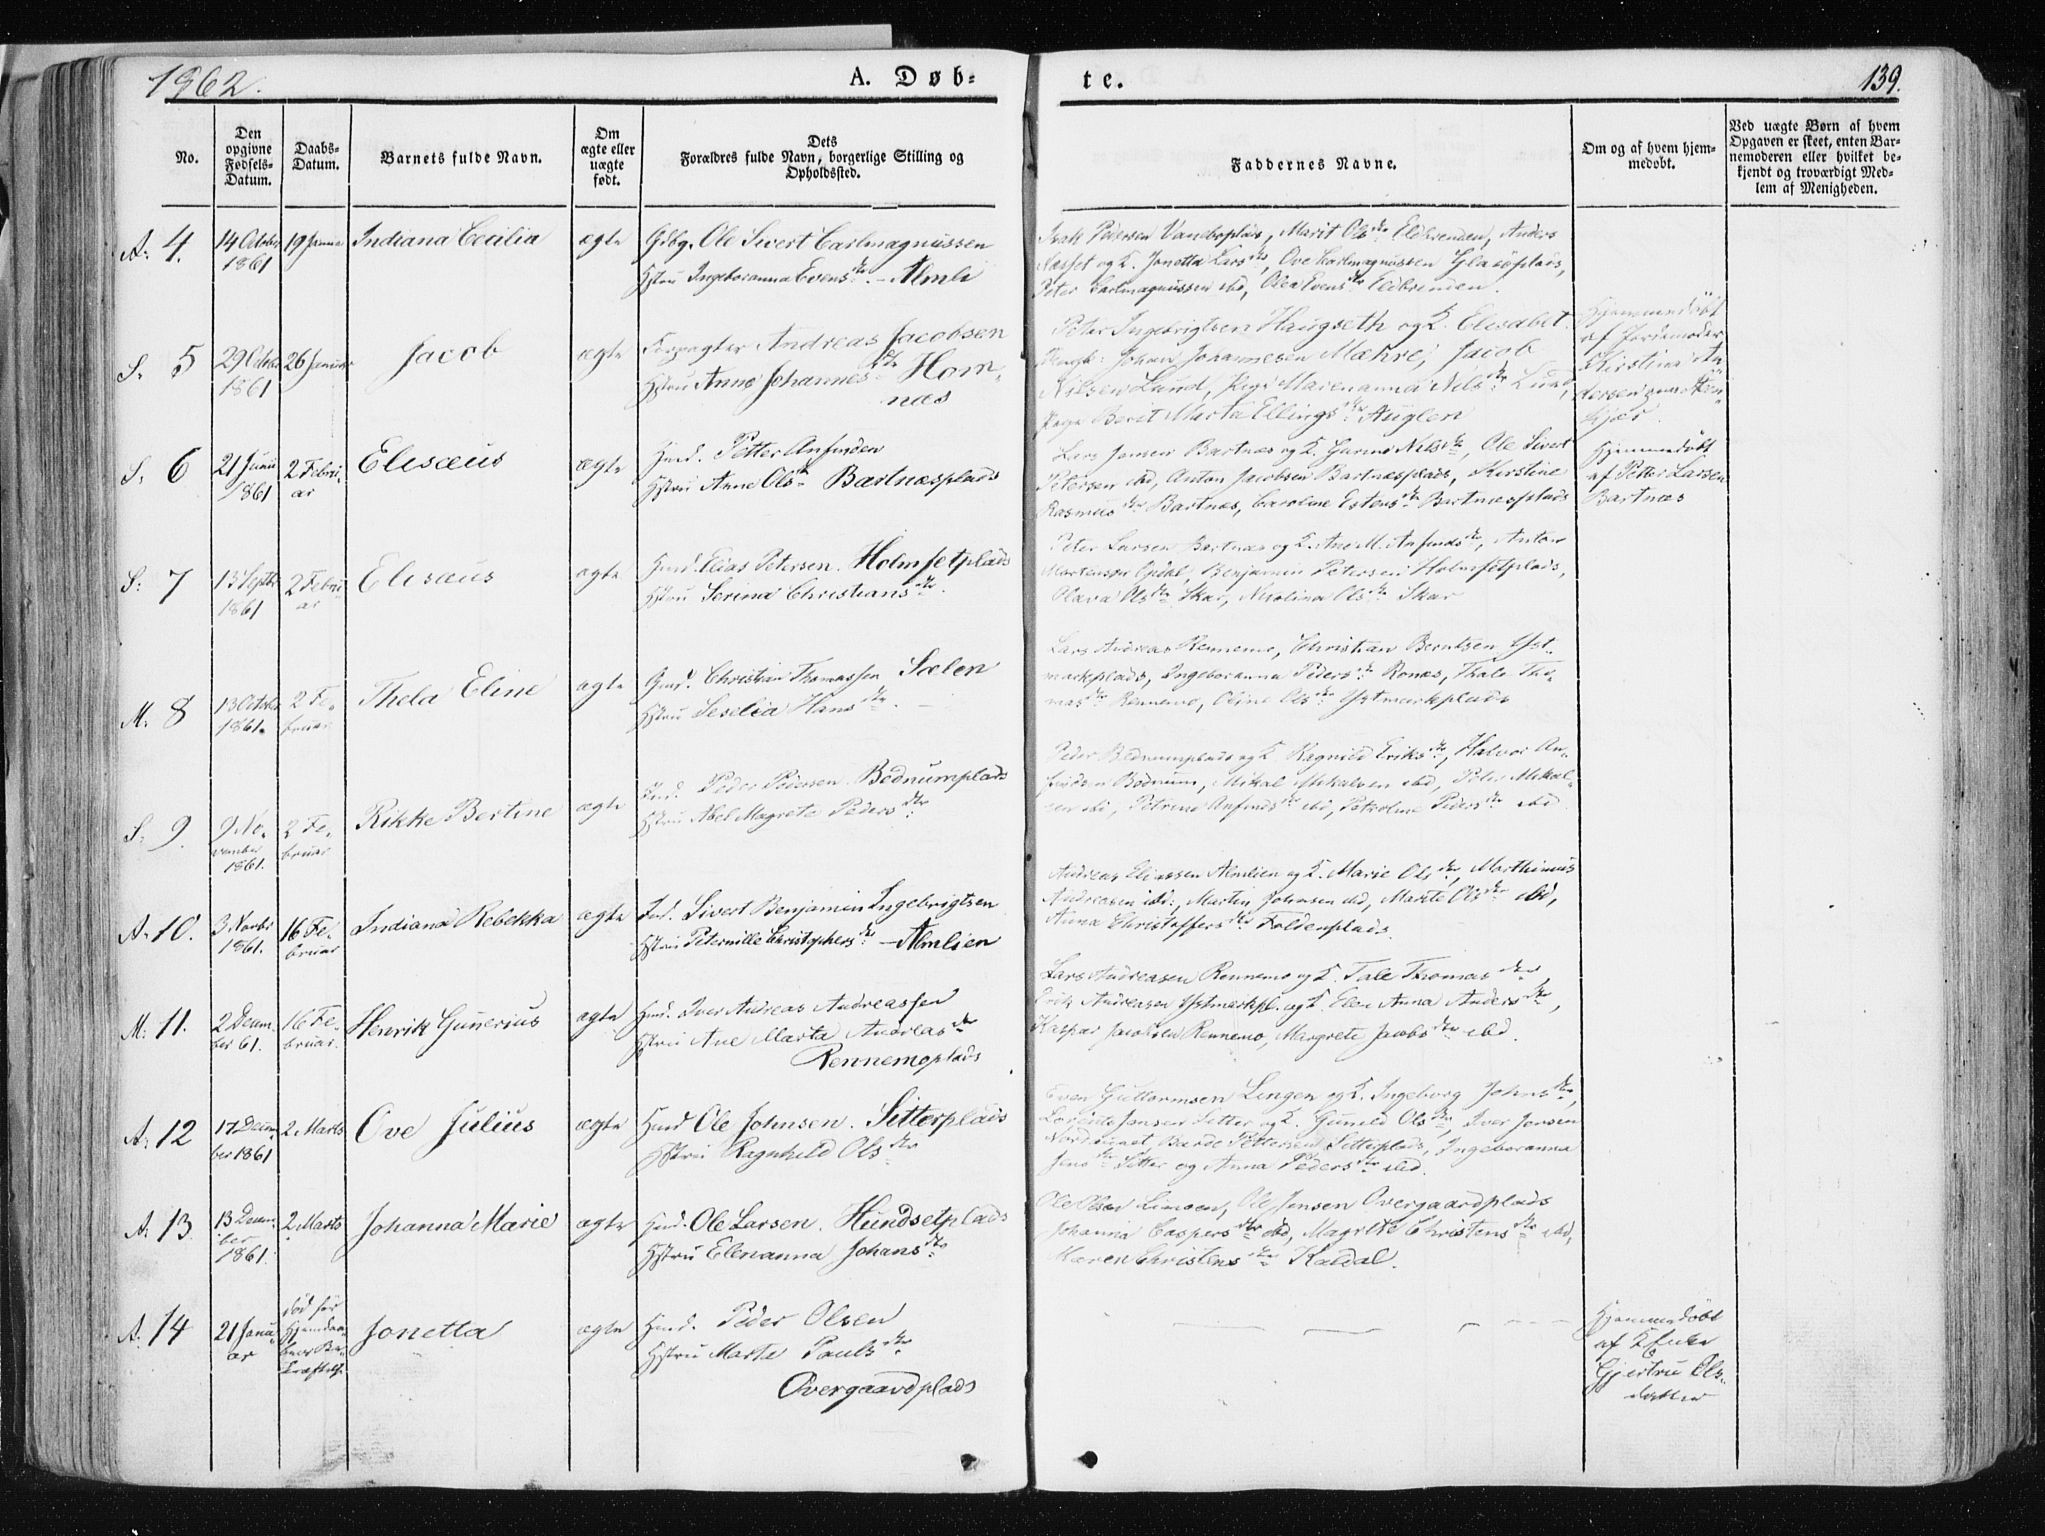 1862.
A. Døb-
te.
139.
No.
Den opgivne Fødsels-Datum.
Daabs-Datum.
Barnets fulde Navn.
Om ægte eller uægte født.
Dets Forældres fulde Navn, borgerlige Stilling og Opholdssted.
Faddernes Navne.
Om og af hvem hjem-medøbt.
Ved uægte Børn af hvem Opgaven er skeet, enten Bar-nemoderen eller hvilket be-kjendt og troværdigt Med-lem af Menigheden.
A. 4. 14 October 1861 19 Januar Indiana Cecilia ægte
Gdbg. Ole Sivert Carlmagnussen
Hstru Ingeboranna Evens dtr. – Almli
Isak Pedersen Vaneboplads, Marit Ols dtr Eldbrenden, Anders
Næsset og K. Jonetta Lars dtr, Ove Carlmagnussen Glasøplads,
Peter Carlmagnussen ibd, Olea Evens dtr Eldbrenden.
S. 5 29 October 1861 26 Januar Jacob ægte
Forpagter Andreas Jacobsen
Hstru Anne Johannes dtr Hom-
næs
Peter Ingebrigtsen Haugseth og K. Elisabet
Ungk: Johan Johannesen Mæhre, Jacob
Nilsen Lund, Pige Marenanna Nils dtr Lund,
Pige Beret Marta Ellings dtr Auglen
Hjemmedøbt
af Jordemoder
Kirstina An-
dersen paa Sten-
kjær.
S. 6 21 Junii 1861 2 Febru-ar Elisæus ægte
Husd. Petter Anfinden
Hstru Anne Ols dtr Bartnæsplads
Lars Jensen Bartnæs og K. Gunne Nils dtr, Ole Sivert
Petersen ibd, Anton Jacobsen Bartnæsplads, Kirstine
Rasmus dtr Bartnæs, Caroline Estens dtr Bartnæsplads
Hjemmedøbt
af Petter Larsen
Bartnæs
S. 7 13 Septbr 1861 2 Febru-ar Elisæus ægte
Husd. Elias Petersen. Holmsetplads
Hstru Serina Christians dtr.
Peter Larsen Bartnæs og K. Ane M. Anfinds dtr, Anton
Martensen Opdal, Benjamin Petersen Holmsetplads,
Olava Ols dtr Skar, Nicolina Ols dtr Skar
M. 8 13 Octobr 1861. 2 Fe-bruar Thela Eline ægte
Gmd. Christian Thomassen Sælen
Hstru Seselia Hans dtr. –
Lars Andreas Rennemo, Christian Berntsen Yst-
markplads, Ingeboranna Peders dtr Ronæs, Thale Tho-
mas dtr Rennemo, Oline Ols dtr Ystmarkplads
S. 9. 9 No-vember 1861. 2 Fe-bruar Rikke Bertine ægte
Ind. Peder Pedersen. Bødnumplads
Hstru Abel Magrete Peders dtr
Peder Bødnumplads og K. Ragnild Eriks dtr, Halvor An-
findsen Bødnum, Mikal Mikalsen ibd, Peter Mikal-
sen ibd, Petrine Anfinds dtr ibd, Petroline Peders dtr ibd
A. 10. 3 Novbr 1861. 16 Fe-bruar Indiana Rebekka ægte
Ind. Sivert Benjamin Ingebrigtsen
Hstru Peternille Christophers dtr – Almlien
Andreas Eliassen Almlien og K. Marie Ols dtr, Marthinus
Andreasen ibd., Martin Johnsen ibd, Marite Ols dtr ibd,
Anna Christoffers dtr Foldenplads.
M. 11. 2 Decem-ber 61. 16 Fe-bruar. Henrik Gunerius ægte
Husd. Iver Andreas Andreassen
Hstru Ane Marta Andreas dtr
Rennemoplads
Lars Andreasen Rennemo og K. Tale Thomas dtr,
Erik Andreasen Ystmarkpl. og K. Elen Anna Anders dtr,
Kaspar Jacobsen Rennemo, Margrete Jacobs dtr ibd.
A. 12 17 Decem-ber 1861 2 Marts Ove Julius ægte
Husd Ole Johnsen. Sitterplads
Hstru Ragnhild Ols dtr
Even Guttormsen Lingen og K. Ingeborg Johns dtr,
Lorents Jensen Sitter og K. Gunild Ols dtr, Iver Jensen
Nordsund, Barde Pettersen Sitterplads, Ingeboranna
Jens dtr Sitter og Anna Peders dtr ibd.
A. 13. 13 Decem-ber 1861. 2 Marts Johanna Marie ægte
Husd. Ole Larsen. Hundsetplads
Hstru Elenanna Johans dtr
Ole Olsen Lingen, Ole Jensen Overgaardplads
Johanna Caspers dtr ibd, Magrete Christens dtr ibd,
Maren Christens dtr Kaldal.
A. 14 21 Janu-ar død før Hjemdaa-bens Be-kræftelse Jonetta ægte
Husd. Peder Olsen
Hstru Marta Pauls dtr
Overgaardplads
Hjemmedøbt
af Enke
Gjertru Ols-
datter